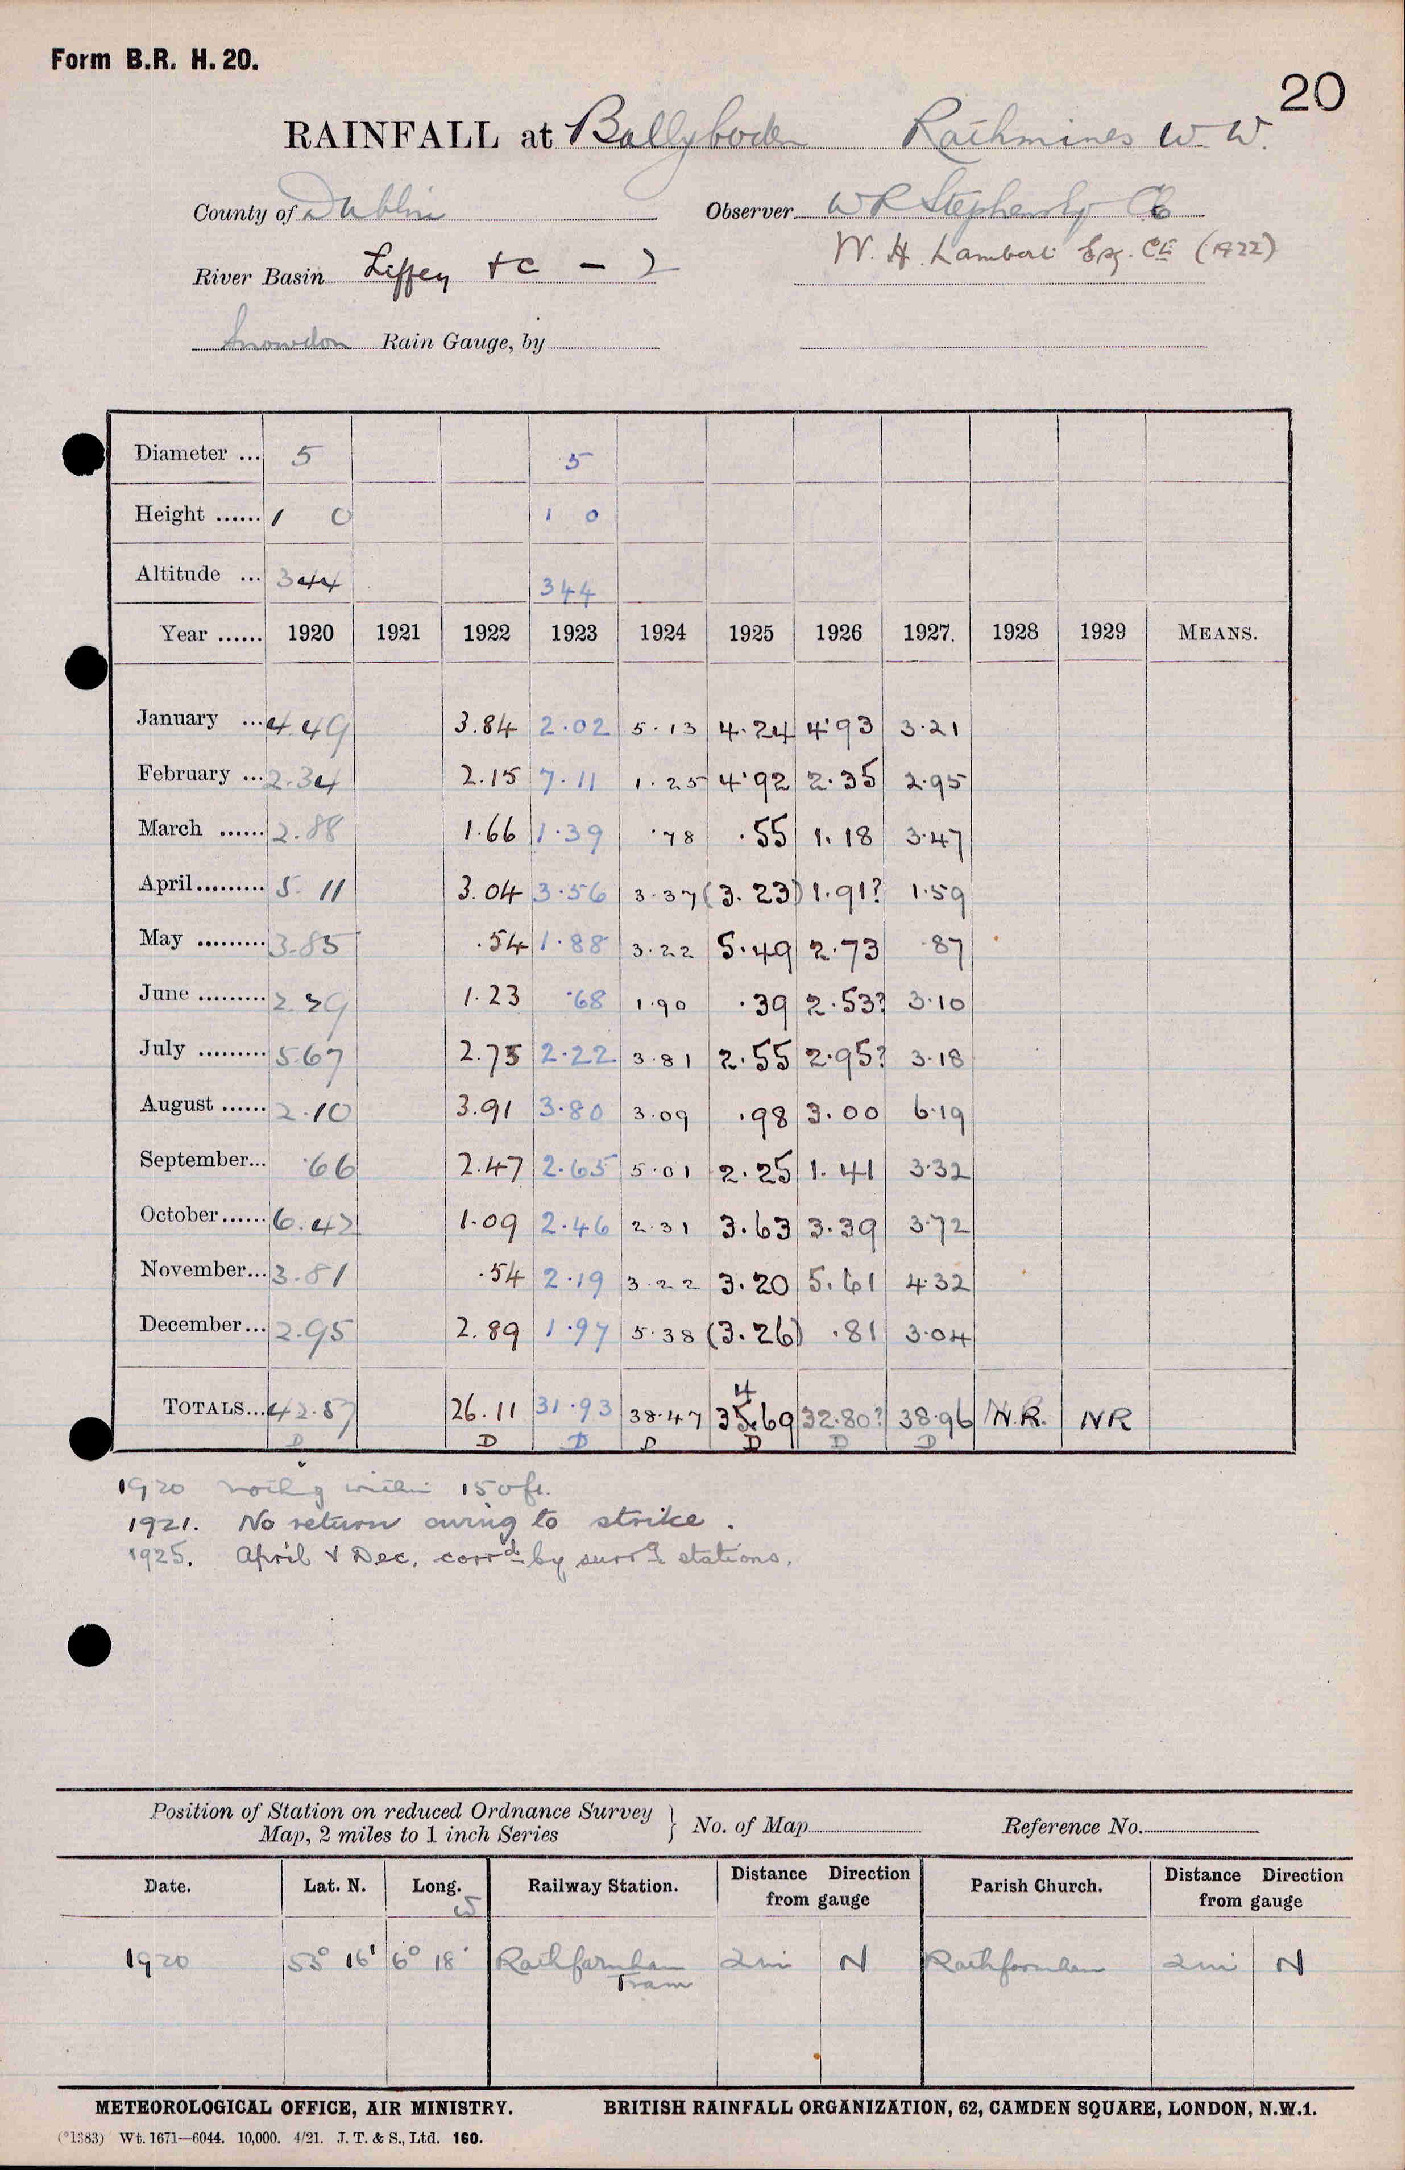 Form B.R. H. 20.
20
RAINFALL at Ballyboden Rathmines W. W.
County of Dublin Observer W R Stephens CE
W. H. Lambert Esq. CE (1922)
River Basin Liffey &c - 2
Snowdon Rain Gauge, by
Diameter ... 5 5
Height ...... 1 0 1 0
Altitude ... 344 344
Year ...... 1920 1921 1922 1923 1924 1925 1926 1927. 1928 1929 MEANS.
January ... 4.49 3.84 2.02 5.13 4.24 4.93 3.21
February ... 2.34 2.15 7.11 1.25 4.92 2.35 2.95
March ...... 2.88 1.66 1.39 .78 .55 1.18 3.47
April ......... 5.11 3.04 3.56 3.37 (3.23) 1.91? 1.59
May ......... 3.85 .54 1.88 3.22 5.49 2.73 .87
June ......... 2.29 1.23 .68 1.90 .39 2.53? 3.10
July ......... 5.67 2.75 2.22 3.81 2.55 2.95? 3.18
August ...... 2.10 3.91 3.80 3.09 .98 3.00 6.19
September... .66 2.47 2.65 5.01 2.25 1.41 3.32
October...... 6.42 1.09 2.46 2.31 3.63 3.39 3.72
November... 3.81 .54 2.19 3.22 3.20 5.61 4.32
December... 2.95 2.89 1.97 5.38 (3.26) .81 3.04
4
TOTALS... 42.57 26.11 31.93 38.47 35.69 32.80? 38.96 N.R. NR
D D D D D D D
1920 nothing within 150ft.
1921. No return owing to strike.
1925. April & Dec. corrd by surrg stations.
Position of Station on reduced Ordnance Survey
Map, 2 miles to 1 inch Series } No. of Map Reference No.
Date. Lat. N. Long. W Railway Station. Distance Direction from gauge Parish Church. Distance Direction from gauge
1920 53° 16' 6° 18' Rathfarnham Tram 2 mi N Rathfarnham 2 mi N
METEOROLOGICAL OFFICE, AIR MINISTRY. BRITISH RAINFALL ORGANIZATION, 62, CAMDEN SQUARE, LONDON, N.W.1.
(*1383) Wt. 1671—6044. 10,000. 4/21. J. T. & S., Ltd. 160.